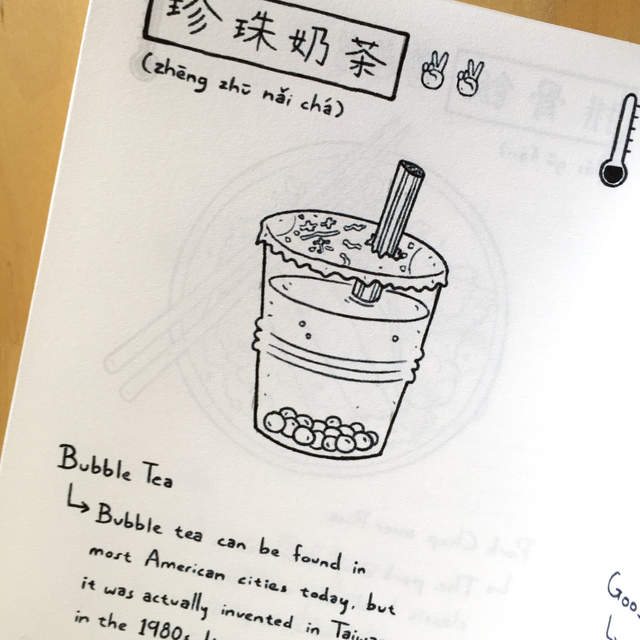 珍珠奶茶
(zhēng zhū nǎi chá)
Bubble Tea
Bubble tea can be found in
most American cities today, but
it was actually invented in Taiwan
in the 1980s